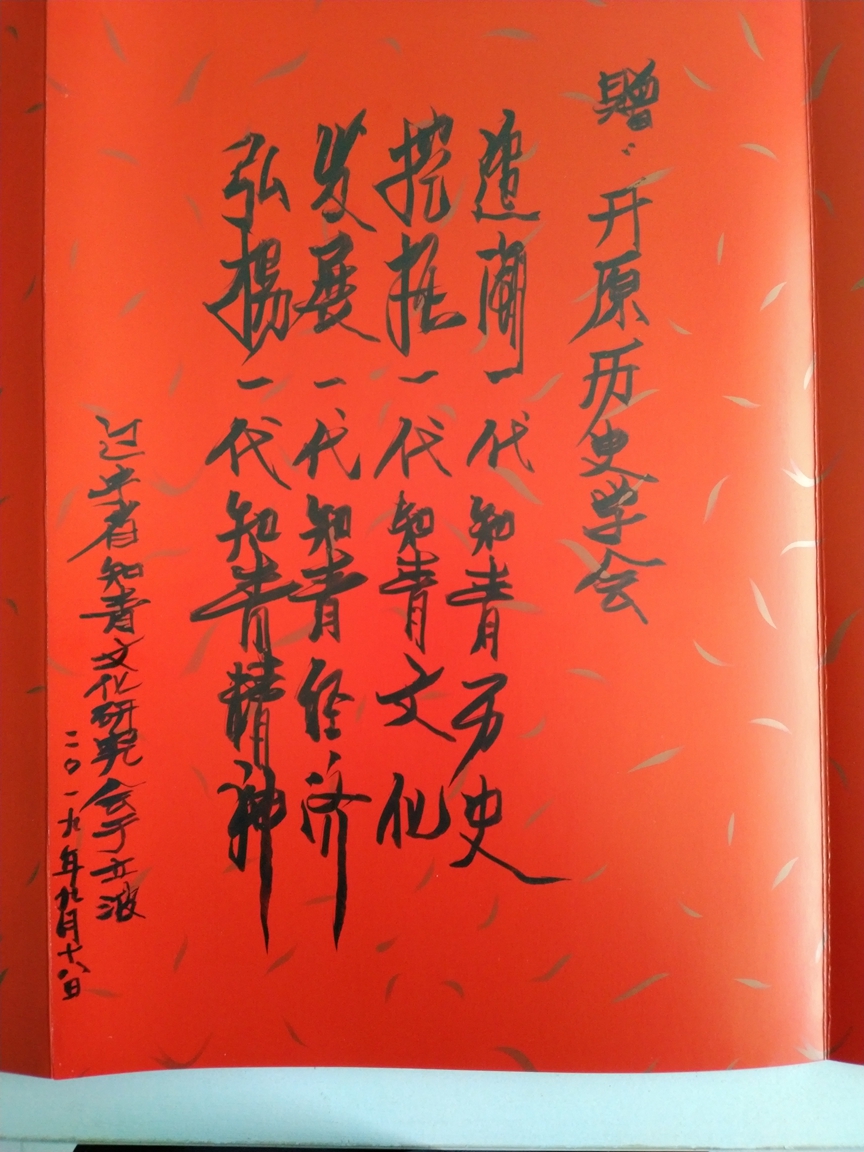 赠:开原历史学会
追溯一代知青历史
挖掘一代知青文化
发展一代知青经济
弘揚一代知青精神
辽宁省知青文化研究会于立波
二〇一九年九月十八日